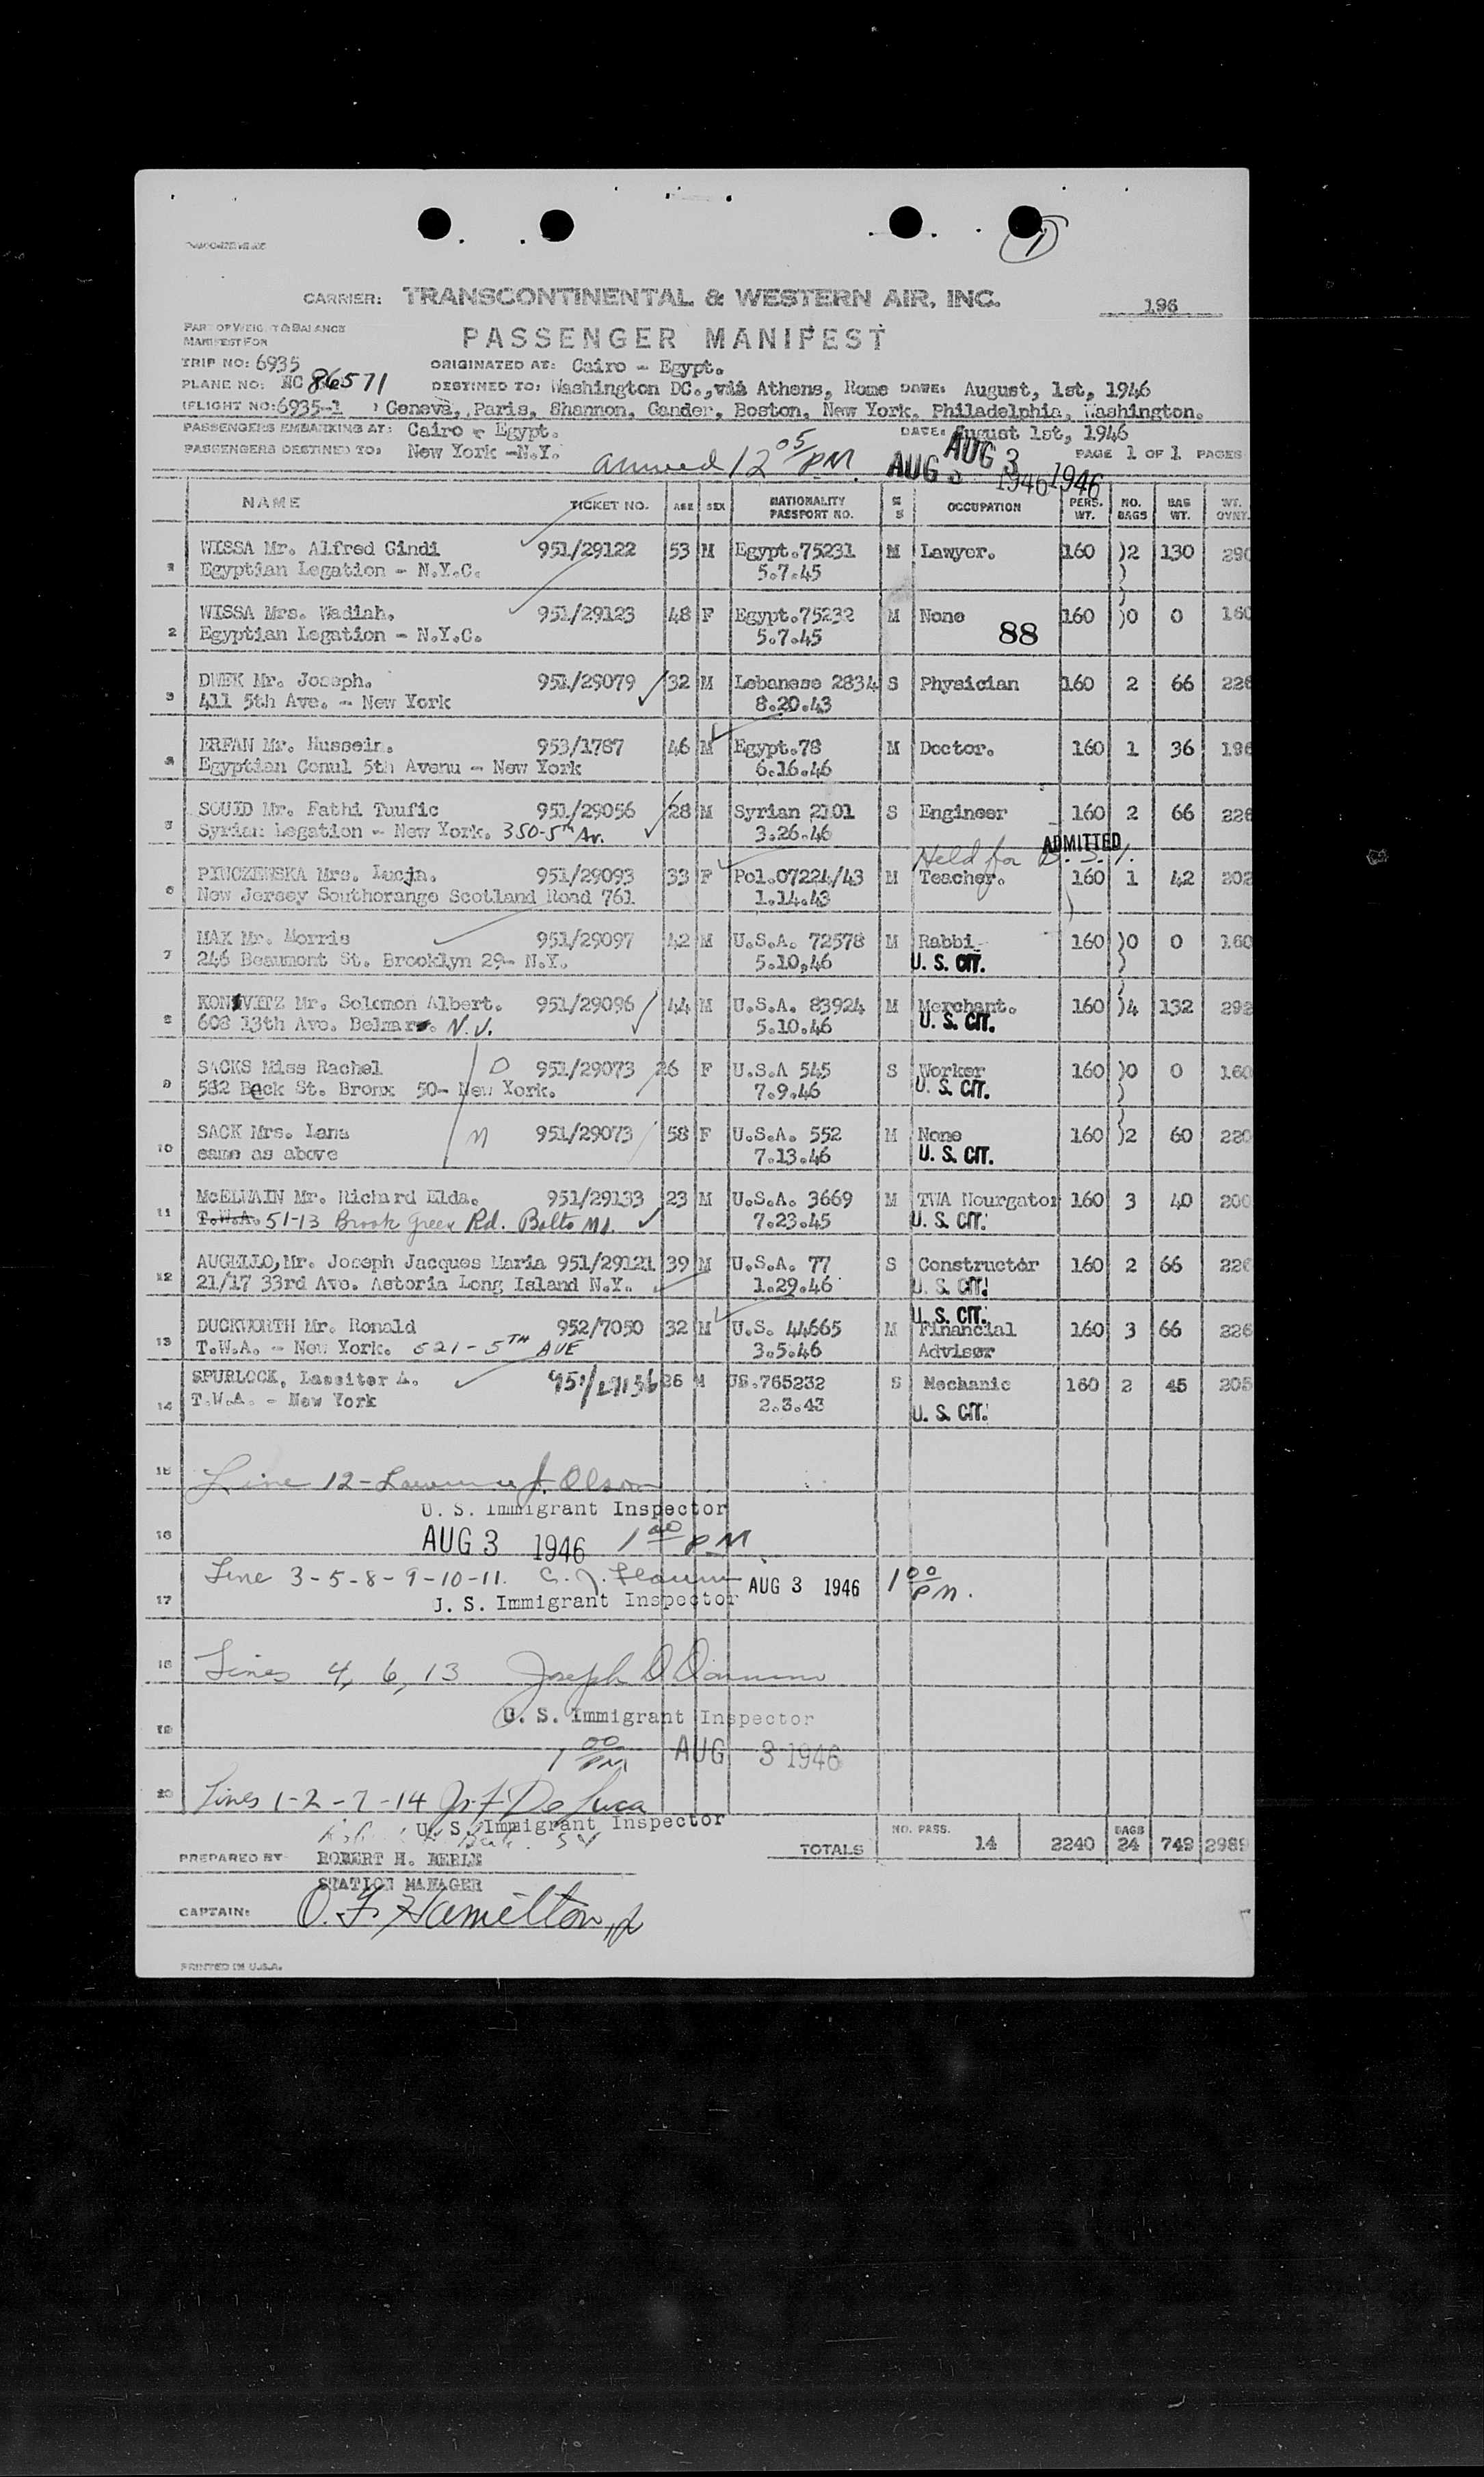 1
CARRIER: TRANSCONTINENTAL & WESTERN AIR, INC. 196
PART OF WEIGHT & BALANCE
MANIFEST FOR
PASSENGER MANIFEST
TRIP NO: 6935 ORIGINATED AT: Cairo - Egypt.
PLANE NO: NC 86571 DESTINED TO: Washington DC., via Athens, Rome DATE: August, 1st, 1946
(FLIGHT NO: 6935-1 ) Geneva, Paris, Shannon, Gander, Boston, New York, Philadelphia, Washington.
PASSENGERS EMBARKING AT: Cairo - Egypt. DATE: August 1st, 1946
PASSENGERS DESTINED TO: New York -N.Y. arrived 12 05 PM AUG 3 1946 AUG 3 1946 PAGE 1 OF 1 PAGES
NAME TICKET NO. AGE SEX NATIONALITY PASSPORT NO. M S OCCUPATION PERS. WT. NO. BAGS BAG WT. WT.
1 WISSA Mr. Alfred Gindi 951/29122 53 M Egypt.75231 M Lawyer. 160 )2 130 290
Egyptian Legation - N.Y.C. 5.7.45 )
2 WISSA Mrs. Wadiah. 951/29123 48 F Egypt.75232 M None 160 )0 0 160
Egyptian Legation - N.Y.C. 5.7.45 88
3 DWEK Mr. Joseph. 951/29079 32 M Lebanese 2834 S Physician 160 2 66 226
411 5th Ave. - New York 8.20.43
4 ERFAN Mr. Hussein. 953/1787 46 M Egypt.78 M Doctor. 160 1 36 196
Egyptian Conul 5th Avenu - New York 6.16.46
5 SOUID Mr. Fathi Tuufic 951/29056 28 M Syrian 2101 S Engineer 160 2 66 226
Syrian Legation - New York. 350-5th Av. 3.26.46
ADMITTED
Held for B.S.I.
6 PINCZEWSKA Mrs. Lucja. 951/29093 33 F Pol.07224/43 M Teacher. 160 1 42 202
New Jersey Southorange Scotland Road 761 1.14.43
7 MAX Mr. Morris 951/29097 42 M U.S.A. 72578 M Rabbi 160 )0 0 160
246 Beaumont St. Brooklyn 29- N.Y. 5.10.46 U. S. CIT. )
8 KONOVITZ Mr. Solomon Albert. 951/29096 44 M U.S.A. 83924 M Merchant. 160 )4 132 292
608 13th Ave. Belmar. N.J. 5.10.46 U. S. CIT.
9 SACKS Miss Rachel D 951/29073 26 F U.S.A 545 S Worker 160 )0 0 160
582 Beck St. Bronx 50- New York. 7.9.46 U. S. CIT. )
10 SACK Mrs. Lana M 951/29073 58 F U.S.A. 552 M None 160 )2 60 220
same as above 7.13.46 U. S. CIT.
11 McELWAIN Mr. Richard Elda. 951/29133 23 M U.S.A. 3669 M TWA Nourgator 160 3 40 200
T.W.A. 51-13 Brook Green Rd. Balto Md. 7.23.45 U. S. CIT.
12 AUGELLO, Mr. Joseph Jacques Maria 951/29121 39 M U.S.A. 77 S Constructor 160 2 66 226
21/17 33rd Ave. Astoria Long Island N.Y. 1.29.46 U. S. CIT.
U. S. CIT.
13 DUCKWORTH Mr. Ronald 952/7050 32 M U.S. 44665 M Financial 160 3 66 226
T.W.A. - New York. 521 - 5TH AVE 3.5.46 Advisor
14 SPURLOCK, Lassiter A. 951/29136 26 M US.765232 S Mechanic 160 2 45 205
T.W.A. - New York 2.3.43 U. S. CIT.
15 Line 12 - Lawrence J. Olson
U. S. Immigrant Inspector
16 AUG 3 1946 1 00 PM
Line 3-5-8-9-10-11. C. J. AUG 3 1946 1 00 PM.
17 U. S. Immigrant Inspector
18 Lines 4, 6, 13 Joseph D.
U. S. Immigrant Inspector
19 1 00 PM AUG 3 1946
20 Lines 1-2-7-14 De Luca
U. S. Immigrant Inspector
TOTALS NO. PASS. 14 2240 BAGS 24 749 2989
PREPARED BY ROBERT H. BERLE
STATION MANAGER
CAPTAIN: O. F. Hamilton, Jr
PRINTED IN U.S.A.